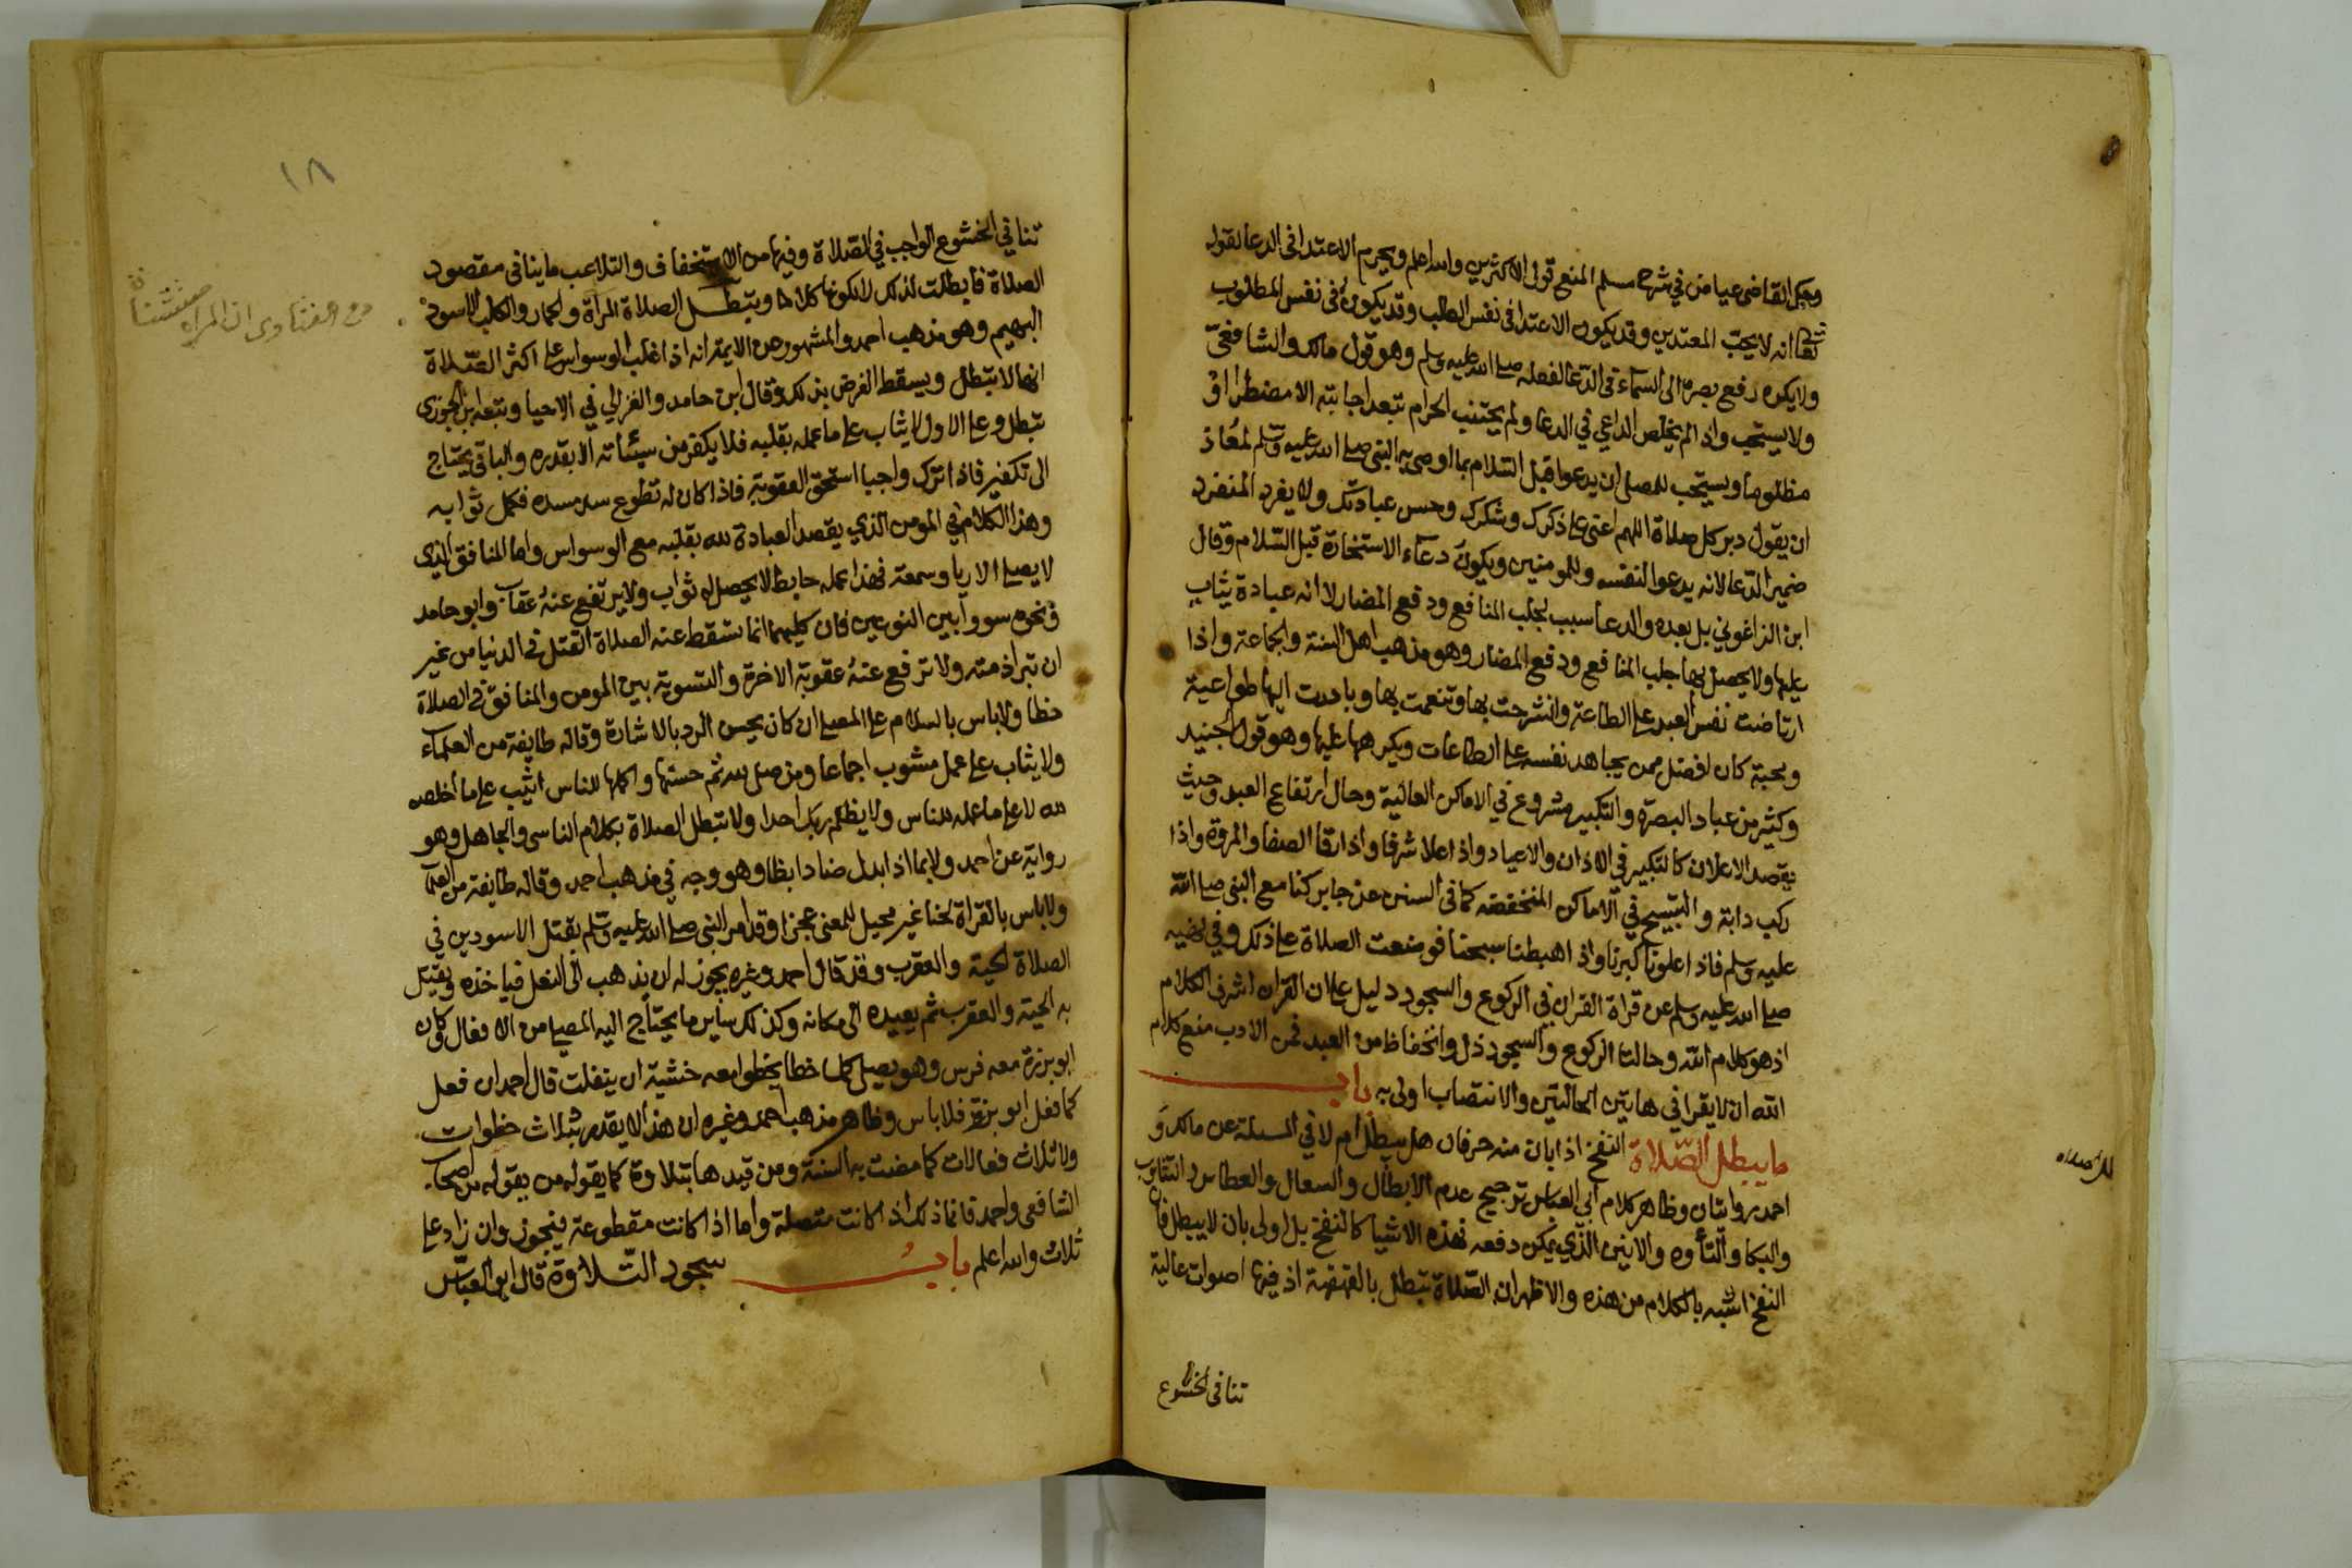 وحكى القاضي عياض في شرح مسلم المنع قول الاكثرين والله اعلم ويحرم الاعتدا في الدعا لقوله
تعالى انه لا يحب المعتدين وقد يكون الاعتدا في نفس الطلب وقد يكون في نفس المطلوب
ولا يكره رفع بصره الى السماء في الدعا لفعله صلى الله عليه وسلم وهو قول مالك والشافعي
ولا يستحب واذا لم يخلص الداعي في الدعا ولم يجتنب الحرام تبعد اجابته الا مضطرا او
مظلوما ويستحب للمصلي ان يدعوا قبل السلام بما اوصى به النبي صلى الله عليه وسلم لمعاذ
ان يقول دبر كل صلاة اللهم اعني على ذكرك وشكرك وحسن عبادتك ولا يفرد المنفرد
ضمير الدعا لانه يدعوا لنفسه وللمومنين ويكون دعآء الاستخارة قبل السلام وقال
ابن الزاغوني بل بعده والدعا سبب لجلب المنافع ودفع المضار لا انه عبادة يثاب
عليها ولا يحصل بها جلب المنافع ودفع المضار وهو مذهب اهل السنة والجماعة واذا
ارتاضت نفس العبد على الطاعة وانشرحت بها وتنعمت بها وبادرت اليها طواعية
ومحبة كان افضل ممن يجاهد نفسه على الطاعات ويكرهها عليها وهو قول الجنيد
وكثير من عباد البصرة والتكبير مشروع في الاماكن العالية وحال ارتفاع العبد وحيث
يقصد الاعلان كالتكبير في الاذان والاعياد واذا علا شرفا واذا رقا الصفا والمروة واذا
ركب دابة والتسبيح في الاماكن المنخفضة كما في السنن عن جابر كنا مع النبي صلى الله
عليه وسلم فاذا علونا كبرنا واذا هبطنا سبحنا فوضعت الصلاة على ذلك وفي نهيه
صلى الله عليه وسلم عن قراة القران في الركوع والسجود دليل على ان القران اشرف الكلام
اذ هو كلام الله وحالتا الركوع والسجود ذل وانخفاظ من العبد فمن الادب منع كلام
الله ان لا يقرا في هاتين الحالتين والانتصاب اولى به باب
ما يبطل الصلاة النفخ اذا بان منه حرفان هل يبطل ام لا في المسلة عن مالك و
احمد روايتان وظاهر كلام ابي العباس ترجيح عدم الابطال والسعال والعطاس والتثاوب
والبكا والتأوه والانين الذي يمكن دفعه فهذه الاشيا كالنفخ بل اولى بان لا يبطل فان
النفخ اشبه بالكلام من هذه والاظهر ان الصلاة تبطل بالقهقهة اذ فيها اصوات عالية
تنافي الخشوع
١٨
تنافي الخشوع الواجب في الصلاة وفيها من الاستخفاف والتلاعب ما ينافي مقصود
الصلاة فابطلت لذلك لا لكونها كلاما ويتبطل الصلاة المرآة والحمار والكلب الاسود
من الفتاوى ان المراه
البهيم وهو مذهب احمد والمشهور عن الايمة انه اذا غلب الوسواس على اكثر الصلاة
انها لا تبطل ويسقط الفرض بذلك وقال ابن حامد والغزالي في الاحيا وتبعه ابن الجوزي
تبطل وعلى الاول لا يثاب على ما عمله بقلبه فلا يكفر من سيئاته الا بقدره والباقي يحتاج
الى تكفير فاذا ترك واجبا استحق العقوبة فاذا كان له تطوع سد مسده فكمل ثوابه
وهذا الكلام في المومن الذي يقصد العبادة لله بقلبه مع الوسواس واما المنافق الذي
لا يصلي الا ريا وسمعة فهذا عمله حابط لا يحصل له ثواب ولا يرتفع عنه عقاب وابو حامد
ونحوه سووا بين النوعين فان كليهما انما تسقط عنه الصلاة القتل في الدنيا من غير
ان تبرا ذمته ولا ترفع عنه عقوبة الاخرة والتسوية بين المومن والمنافق في الصلاة
خطا ولا باس بالسلام على المصلي ان كان يحسن الرد بالاشارة وقاله طايفة من العلماء
ولا يثاب على عمل مشوب اجماعا ومن صلى لله ثم حسنها واكملها للناس اثيب على ما اخلصه
لله لا على ما عمله للناس ولا يظلم ربك احدا ولا تبطل الصلاة بكلام الناسي والجاهل وهو
رواية عن احمد ولا بما اذا ابدل ضادا بظا وهو وجه في مذهب احمد وقاله طايفة من العلما
ولا باس بالقراة لحنا غير محيل للمعنى عجزا وقد امر النبي صلى الله عليه وسلم بقتل الاسودين في
الصلاة الحية والعقرب وقد قال احمد وغيره يجوز له ان يذهب الى النعل فياخذه ويقتل
به الحية والعقرب ثم يعيده الى مكانه وكذلك سأير ما يحتاج اليه المصلي من الافعال وكان
ابو برزة معه فرس وهو يصلي كلما خطا يخطوا معه خشية ان ينفلت قال احمد ان فعل
كما فعل ابو برزة فلا باس وظاهر مذهب احمد وغيره ان هذا لا يقدر بثلاث خطوات
ولا ثلاث فعالات كما مضت به السنة ومن قيدها بثلاوة كما يقوله من يقوله من اصحاب
الشافعي واحمد فانما ذلك اذا كانت متصلة واما اذا كانت مقطوعة فيجوز وان زاد على
ثلاث والله اعلم باب سجود التلاوة قال ابو العباس